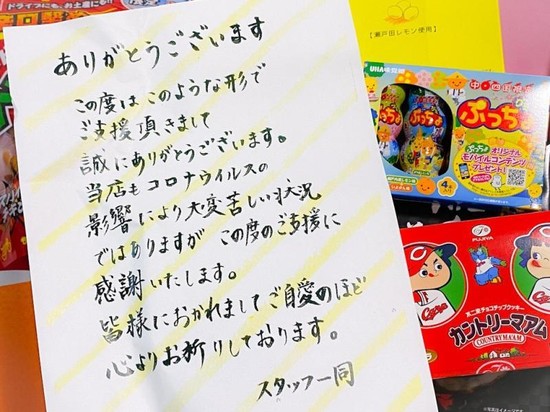 ドライブにも、お土産にも!!
ありがとうございます
この度はこのような形で
ご支援頂きまして
誠にありがとうございます。
当店もコロナウイルスの
影響により大変苦しい状況
ではありますが この度のご支援に
感謝いたします。
皆様におかれましてご自愛のほど
心よりお祈りしております。
スタッフ一同
【瀬戸田レモン使用】
UHA味覚糖
ぷっちょ
ぷっちょ
オリジナル
モバイルコンテンツ
プレゼント!
4
FUJIYA
Carp
Carp
カントリーマアム
COUNTRY MA'AM